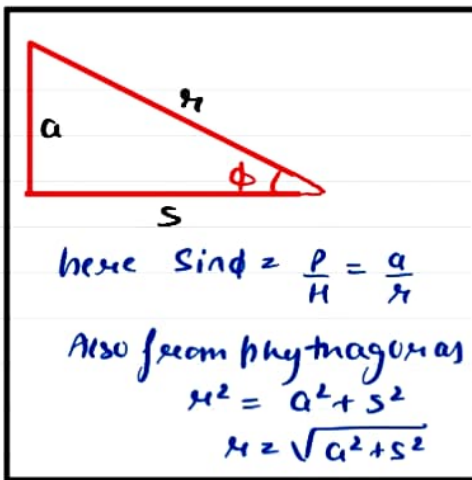 a
r
ϕ
S
here Sinϕ = P/H = a/r
Also from phythagoras
r² = a² + s²
r = √(a² + s²)